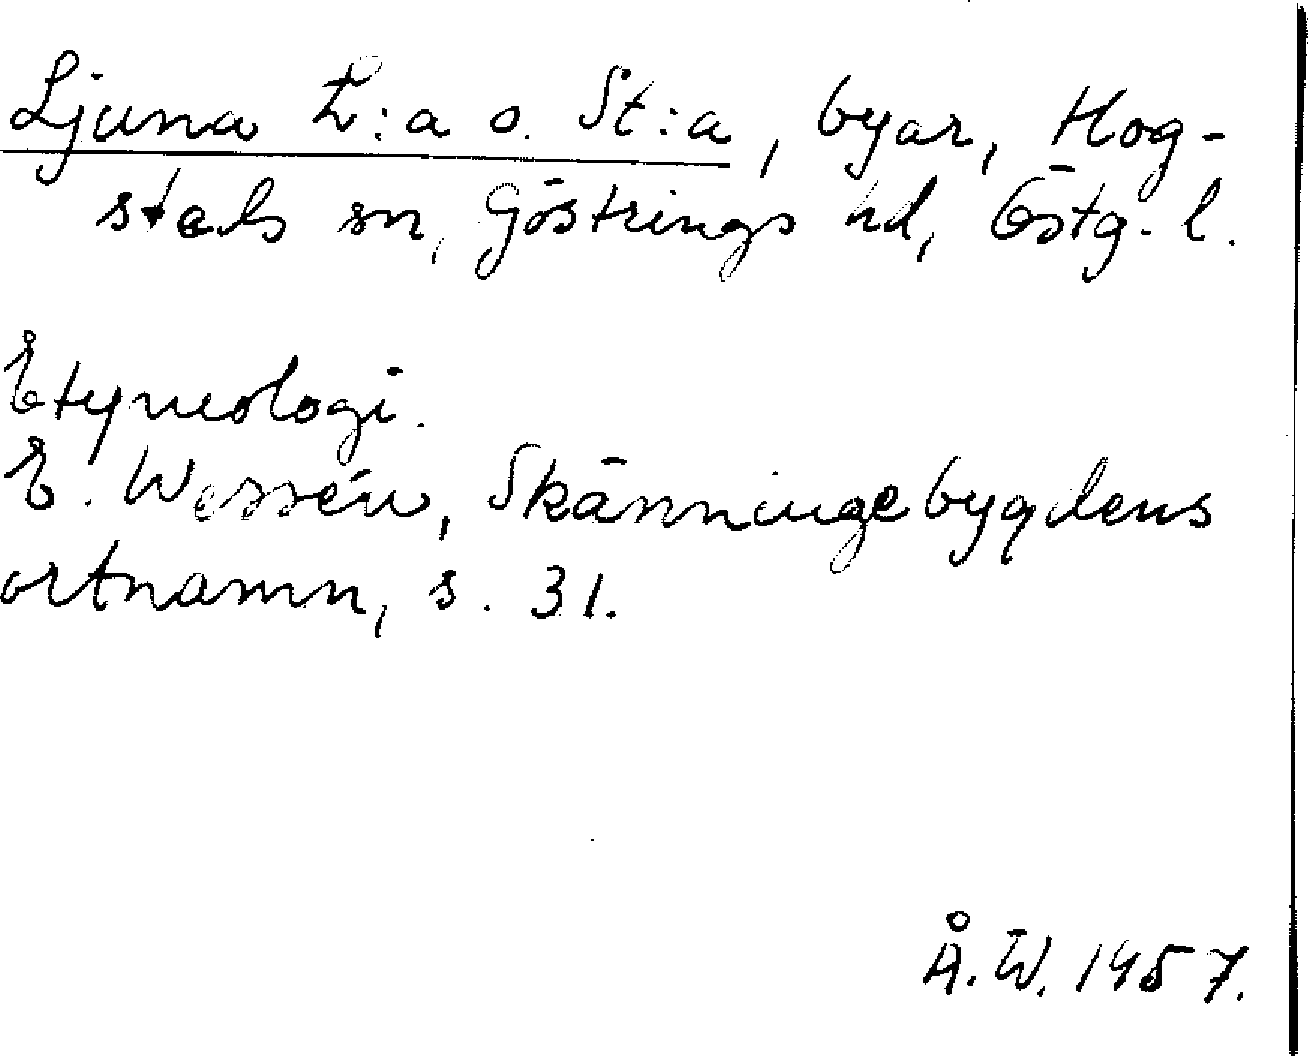 Ljuna L:a o. St:a, byar, Hog-
stads sn, Göstrings hd, Östg. l.
Etymologi.
E. Wessén, Skänningebygdens
ortnamn, s. 31.
Å. W. 1957.